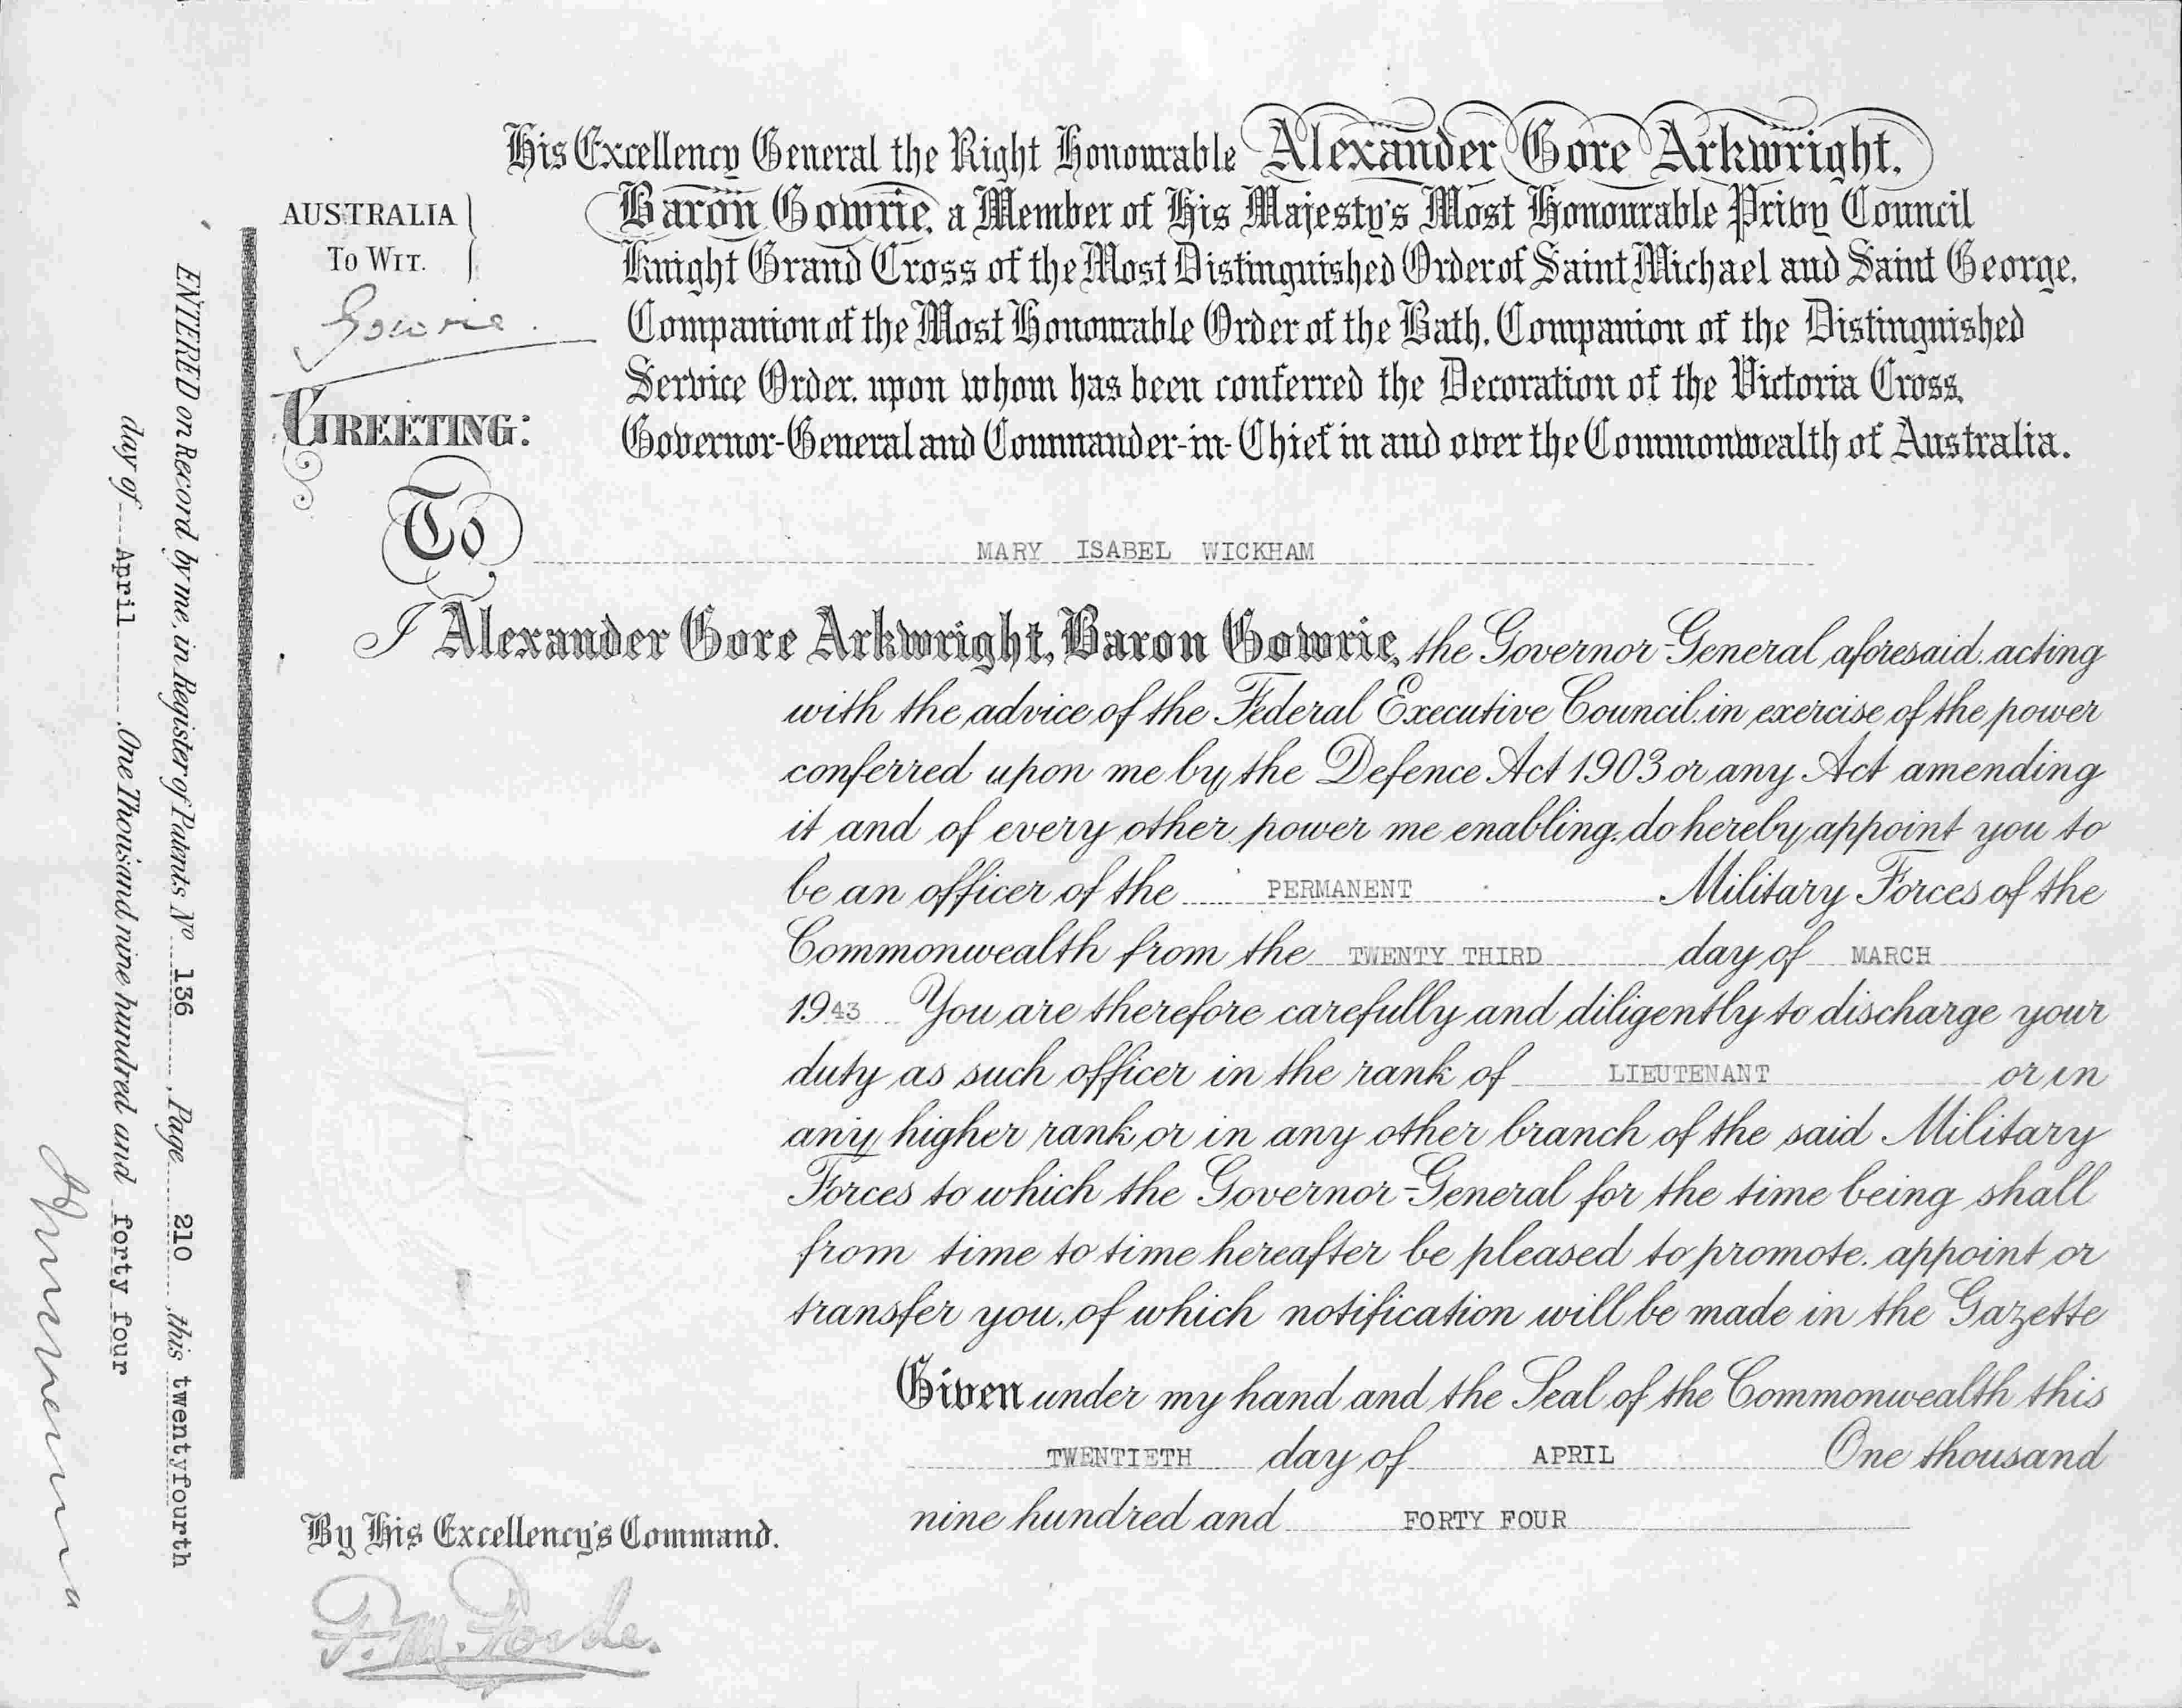 His Excellency General the Right Honourable Alexander Gore Arkwright,
Baron Gowrie, a Member of His Majesty's Most Honourable Privy Council
Knight Grand Cross of the Most Distinguished Order of Saint Michael and Saint George,
Companion of the Most Honourable Order of the Bath, Companion of the Distinguished
Service Order, upon whom has been conferred the Decoration of the Victoria Cross,
Governor-General and Commander-in-Chief in and over the Commonwealth of Australia.
AUSTRALIA
TO WIT.
Gowrie.
GREETING:
To MARY ISABEL WICKHAM
I Alexander Gore Arkwright, Baron Gowrie, the Governor-General aforesaid, acting
with the advice of the Federal Executive Council in exercise of the power
conferred upon me by the Defence Act 1903 or any Act amending
it and of every other power me enabling, do hereby appoint you to
be an officer of the PERMANENT Military Forces of the
Commonwealth from the TWENTY THIRD day of MARCH
1943 You are therefore carefully and diligently to discharge your
duty as such officer in the rank of LIEUTENANT or in
any higher rank or in any other branch of the said Military
Forces to which the Governor-General for the time being shall
from time to time hereafter be pleased to promote, appoint or
transfer you, of which notification will be made in the Gazette
Given under my hand and the Seal of the Commonwealth this
TWENTIETH day of APRIL One thousand
nine hundred and FORTY FOUR
By His Excellency's Command.
F. M. Forde.
ENTERED on Record by me, in Register of Patents No 136, Page 210 this twentyfourth
day of April, One Thousand nine hundred and forty four